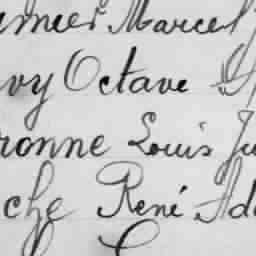 Marcel
Octave
ronne Louis Ju
che René Ad